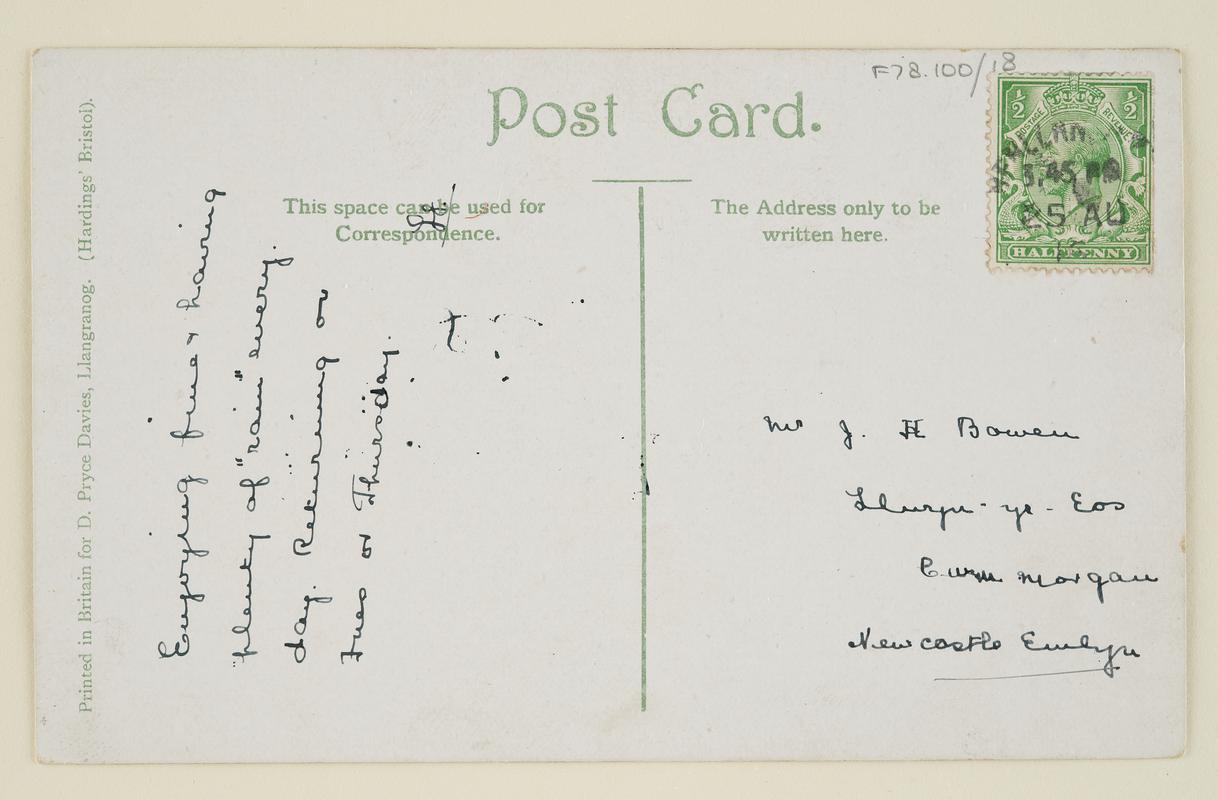 F78.100/18
Post Card.
This space can be used for
Correspondence.
The Address only to be
written here.
1/2 1/2
POSTAGE REVENUE
3.45 PM
25 AU
13
HALFPENNY
Printed in Britain for D. Pryce Davies, Llangranog. (Hardings' Bristol).
Enjoying fine & having
plenty of "rain" every
day. Returning on
Tues or Thursday.
Mr J. H Bowen
Llwyn-yr-Eos
Cwm morgan
Newcastle Emlyn